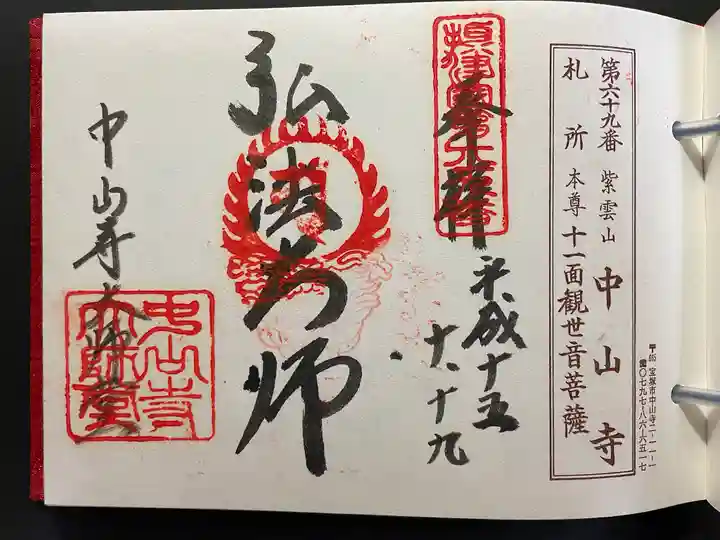 第六十九番 紫雲山 中山寺
札所 本尊 十一面観世音菩薩
〒665 宝塚市中山寺二-一一-一
☎〇七九七-八六-六五一七
奉拝 平成十五
十.十九
弘法大師
中山寺大師堂
中山寺
大師堂